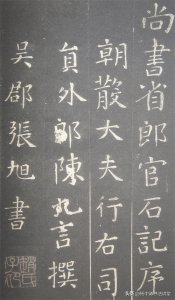 尚書省郎官石記序
朝散大夫行右司
員外郎陳九言撰
吳郡張旭書